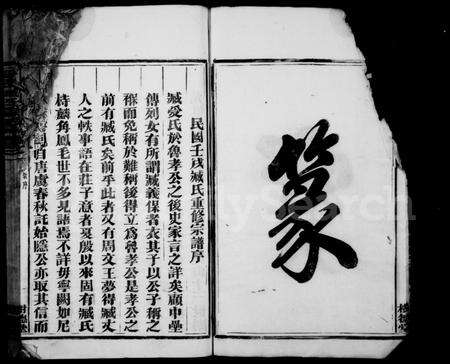 篆
民國壬戌臧氏重修宗譜序
臧受氏於魯孝公之後史家言之詳矣顧中壘
傳列女有所謂臧義保者衣其子以公子稱之
而免稱於難稱後得立為魯孝公是孝公之
前有臧氏矣前乎此者又有周文王夢得臧丈
人之軼事語在莊子意者夏殷以來固有臧氏
特麟角鳳毛世不多見語焉不詳毋寧闕如尼
自唐虞春秋託始隱公亦取其信而